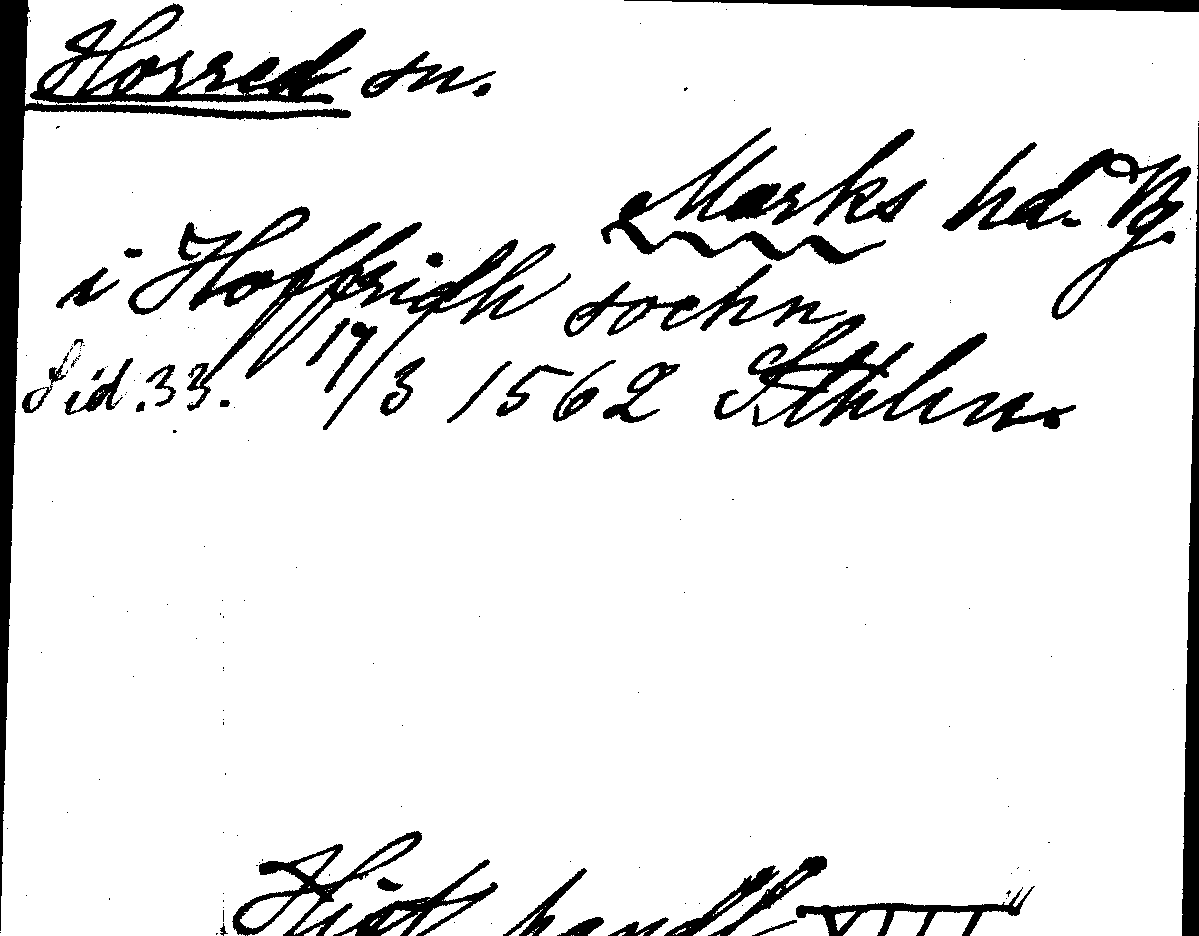 Horred sn.
Marks hd. Vg.
i Hoffridh sochn
Sid. 33. 17/3 1562 Sthlm.
Hist. handl. XIII